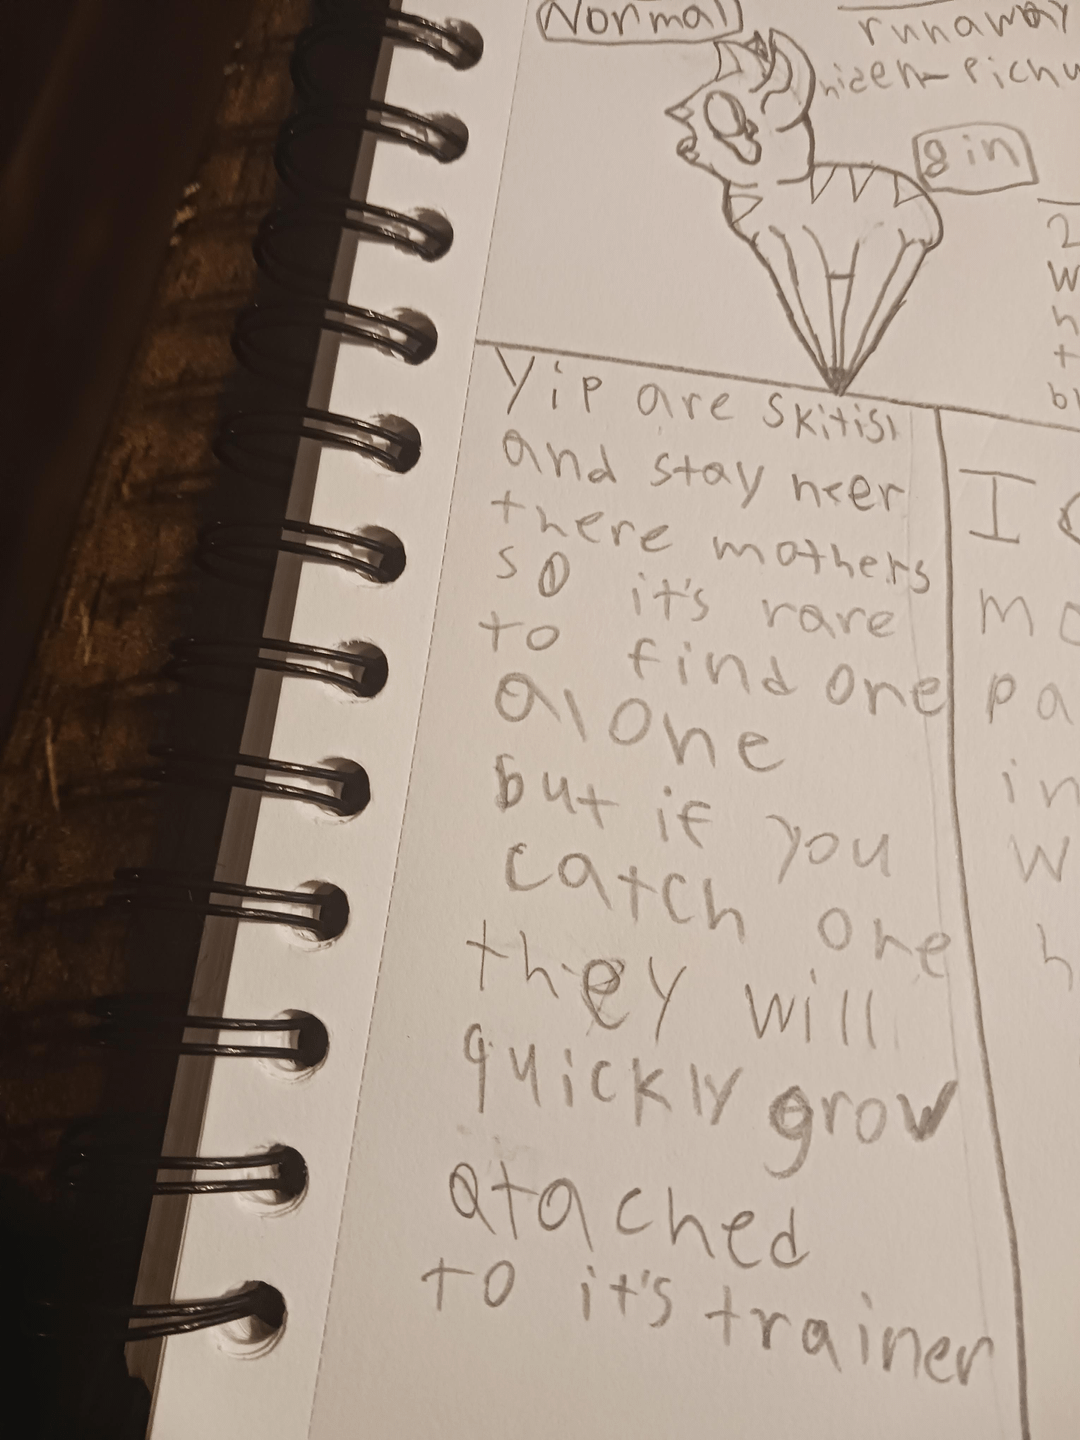 Normal
runaway
Pichu
8 in
2
W
h
t
bl
Yip are skitish
and stay neer
there mothers
so it's rare
to find one
alone
but if you
catch one
they will
quickly grow
atached
to it's trainer
I
mo
pa
in
W
h